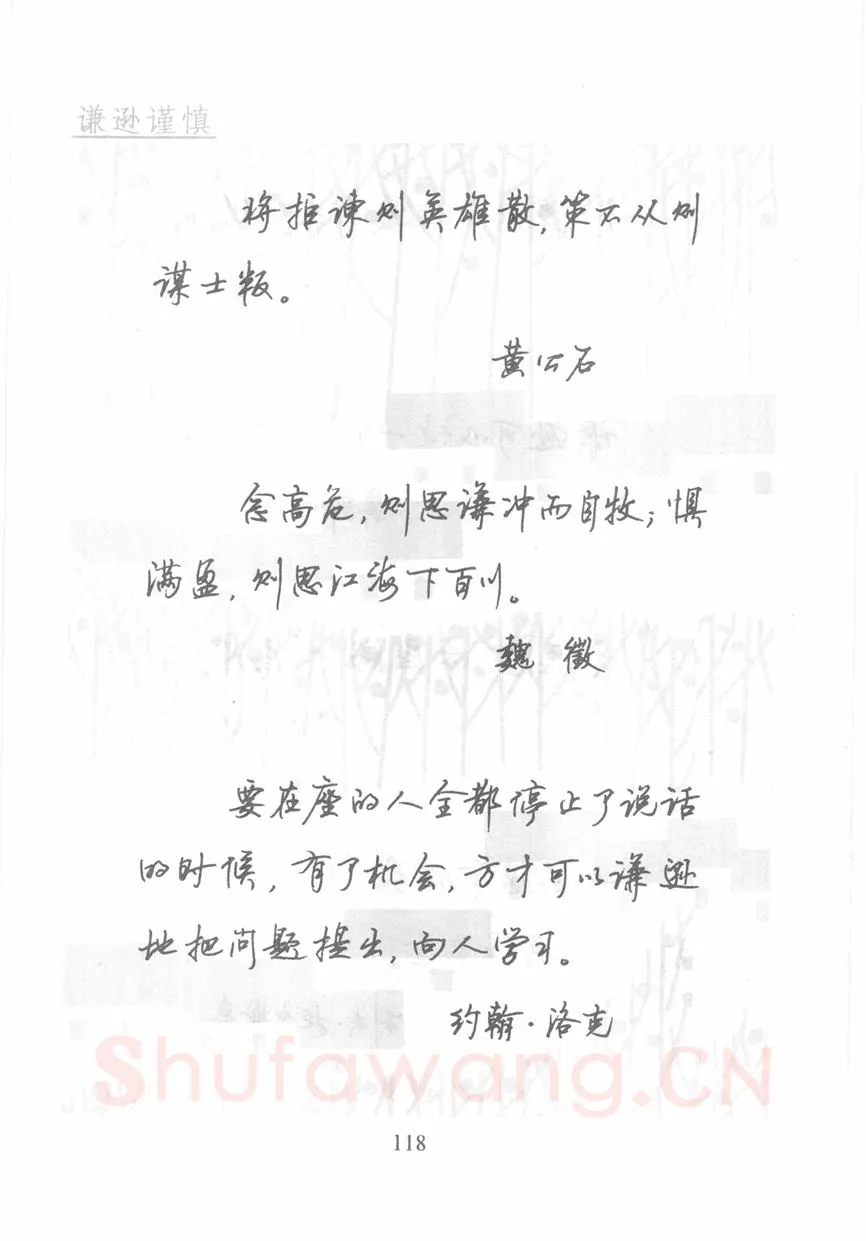 谦逊谨慎
将拒谏则英雄散,策不从则
谋士叛。
黄公石
念高危,则思谦冲而自牧;惧
满盈,则思江海下百川。
魏徵
要在座的人全都停止了说话
的时候,有了机会,方才可以谦逊
地把问题提出,向人学习。
约翰·洛克
Shufawang.CN
118